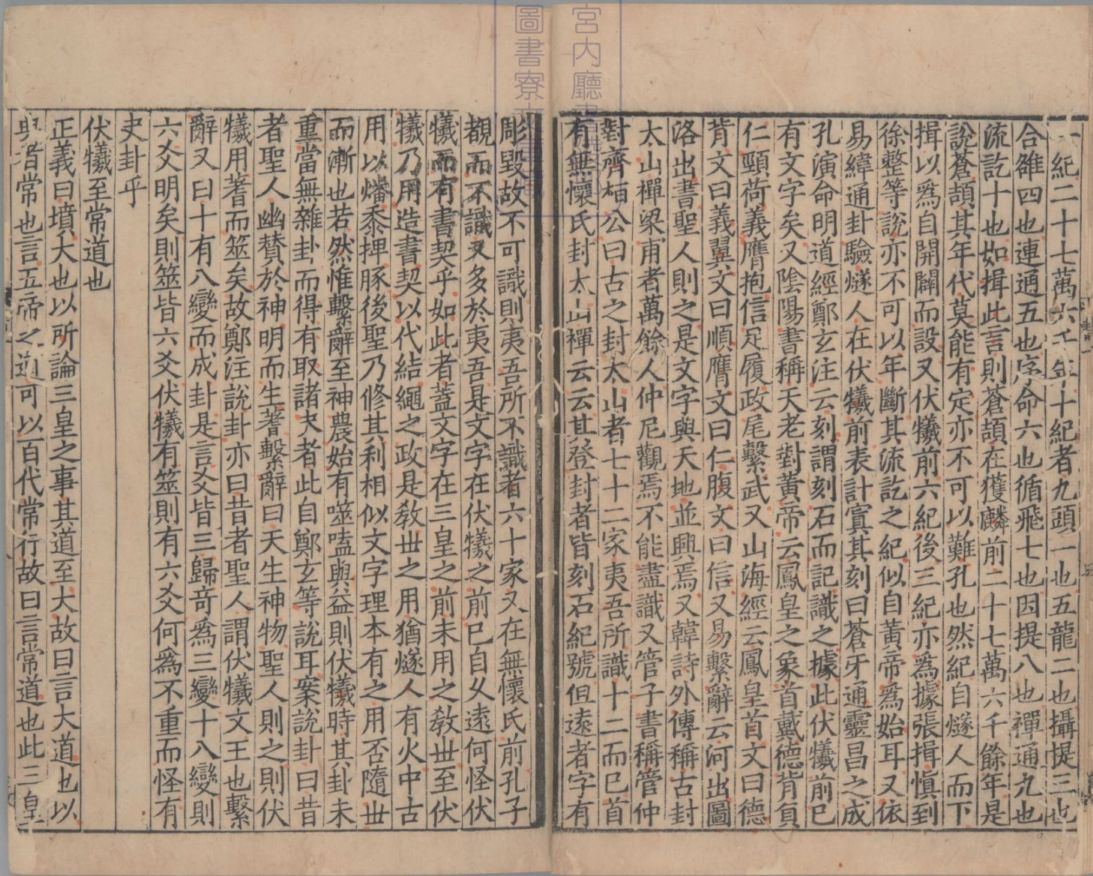 一紀二十七萬六千年十紀者九頭一也五龍二也攝提三也
合雒四也連通五也序命六也循飛七也因提八也禪通九也
流訖十也如揖此言則蒼頡在獲麟前二十七萬六千餘年是
說蒼頡其年代莫能有定亦不可以難孔也然紀自燧人而下
揖以爲自開闢而設又伏犧前六紀後三紀亦爲據張揖愼到
徐整等說亦不可以年斷其流訖之紀似自黃帝爲始耳又依
易緯通卦驗燧人在伏犧前表計寘其刻曰蒼牙通靈昌之成
孔演命明道經鄭玄注云刻謂刻石而記識之據此伏犧前已
有文字矣又陰陽書稱天老對黃帝云鳳皇之象首戴德背負
仁頸荷義膺抱信足履政尾繫武又山海經云鳳皇首文曰德
背文曰義翼文曰順膺文曰仁腹文曰信又易繫辭云河出圖
洛出書聖人則之是文字與天地並興焉又韓詩外傳稱古封
太山禪梁甫者萬餘人仲尼觀焉不能盡識又管子書稱管仲
對齊桓公曰古之封太山者七十二家夷吾所識十二而已首
有無懷氏封太山禪云云其登封者皆刻石紀號但遠者字有
彫毀故不可識則夷吾所不識者六十家又在無懷氏前孔子
覩而不識又多於夷吾是文字在伏犧之前已自久遠何怪伏
犧而有書契乎如此者蓋文字在三皇之前未用之敎世至伏
犧乃用造書契以代結繩之政是敎世之用猶燧人有火中古
用以燔黍捭豚後聖乃修其利相似文字理本有之用否隨世
而漸也若然惟繫辭至神農始有噬嗑與益則伏犧時其卦未
重當無雜卦而得有取諸夬者此自鄭玄等說耳案說卦曰昔
者聖人幽贊於神明而生蓍繫辭曰天生神物聖人則之則伏
犧用蓍而筮矣故鄭注說卦亦曰昔者聖人謂伏犧文王也繫
辭又曰十有八變而成卦是言爻皆三歸奇爲三變十八變則
六爻明矣則筮皆六爻伏犧有筮則有六爻何爲不重而怪有
夬卦乎
伏犧至常道也
正義曰墳大也以所論三皇之事其道至大故曰言大道也以
典者常也言五帝之道可以百代常行故曰言常道也此三皇
宮内廳
圖書寮